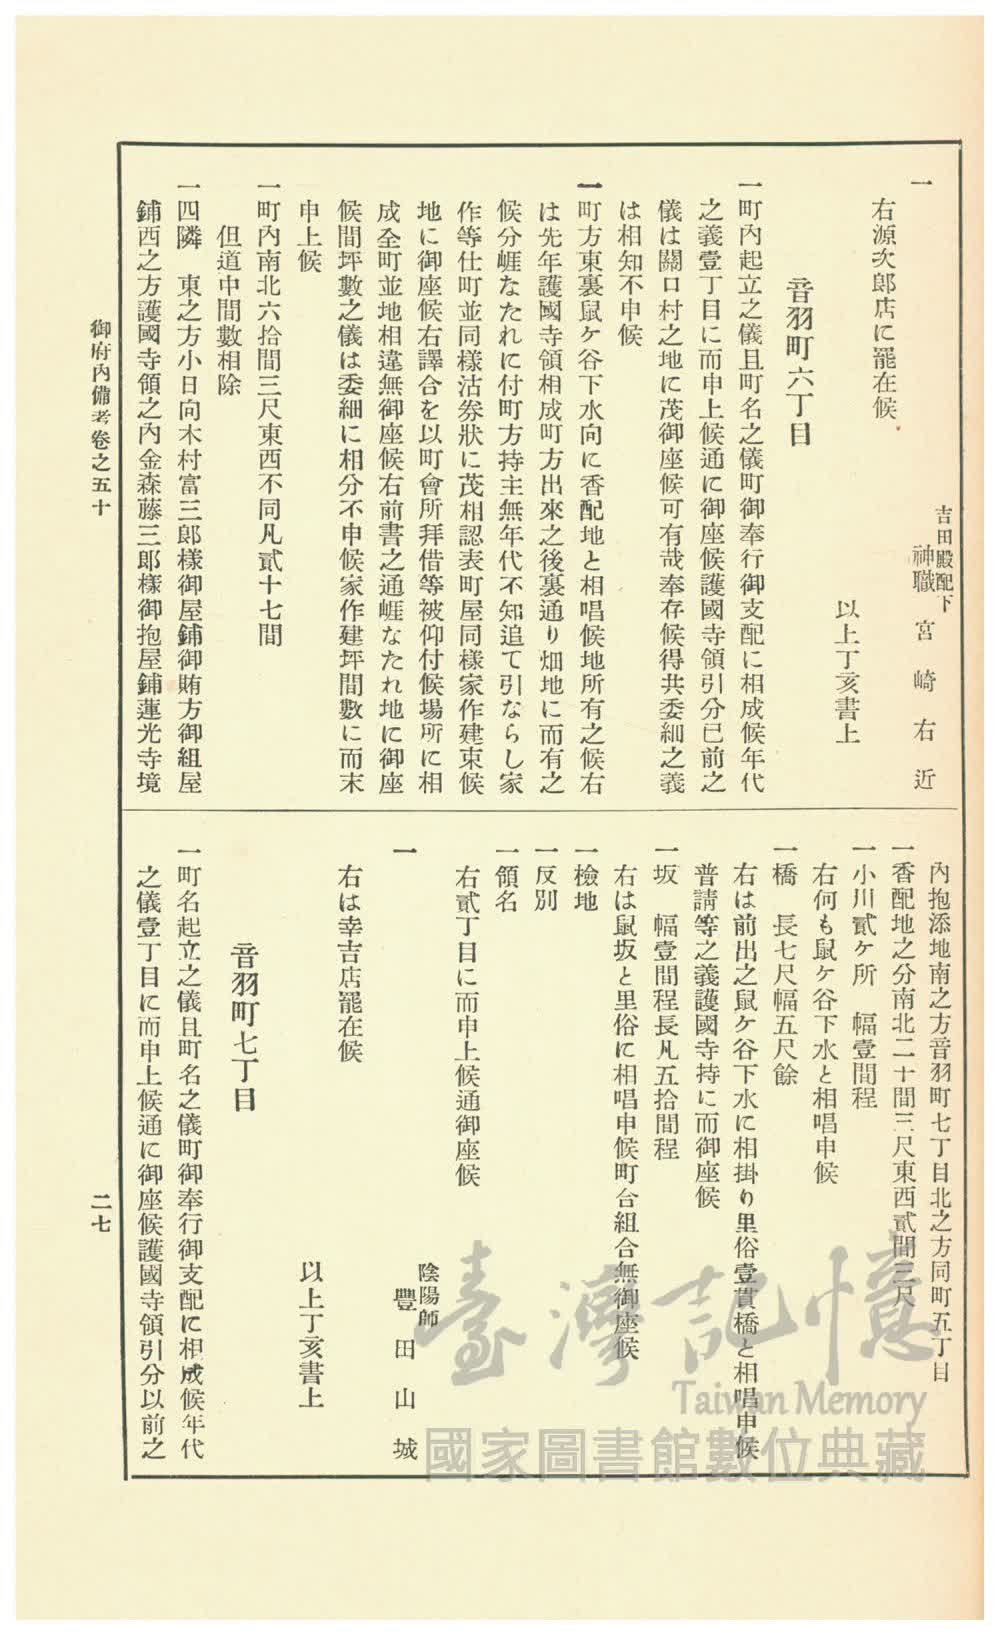 一
吉田殿配下
神職 宮崎右近
右源次郎店に罷在候
以上丁亥書上
音羽町六丁目
一町內起立之儀且町名之儀町御奉行御支配に相成候年代
之義壹丁目に而申上候通に御座候護國寺領引分已前之
儀は關口村之地に茂御座候可有哉奉存候得共委細之義
は相知不申候
一町方東裏鼠ケ谷下水向に香配地と相唱候地所有之候右
は先年護國寺領相成町方出來之後裏通り畑地に而有之
候分崕なたれに付町方持主無年代不知追て引ならし家
作等仕町並同樣沽券狀に茂相認表町屋同樣家作建束候
地に御座候右譯合を以町會所拜借等被仰付候場所に相
成全町並地相違無御座候右前書之通崕なたれ地に御座
候間坪數之儀は委細に相分不申候家作建坪間數に而末
申上候
一町內南北六拾間三尺東西不同凡貳十七間
但道中間數相除
一四隣 東之方小日向木村富三郎樣御屋鋪御賄方御組屋
鋪西之方護國寺領之內金森藤三郎樣御抱屋鋪蓮光寺境
內抱添地南之方音羽町七丁目北之方同町五丁目
一香配地之分南北二十間三尺東西貳間三尺
一小川貳ケ所 幅壹間程
右何も鼠ケ谷下水と相唱申候
一橋 長七尺幅五尺餘
右は前出之鼠ケ谷下水に相掛り里俗壹貫橋と相唱申候
普請等之義護國寺持に而御座候
一坂 幅壹間程長凡五拾間程
右は鼠坂と里俗に相唱申候町台組合無御座候
一檢地
一反別
一領名
右貳丁目に而申上候通御座候
一
陰陽師
豐田山城
右は幸吉店罷在候
以上丁亥書上
音羽町七丁目
一町名起立之儀且町名之儀町御奉行御支配に相成候年代
之儀壹丁目に而申上候通に御座候護國寺領引分以前之
御府內備考卷之五十
二七
臺灣記憶
Taiwan Memory
國家圖書館數位典藏